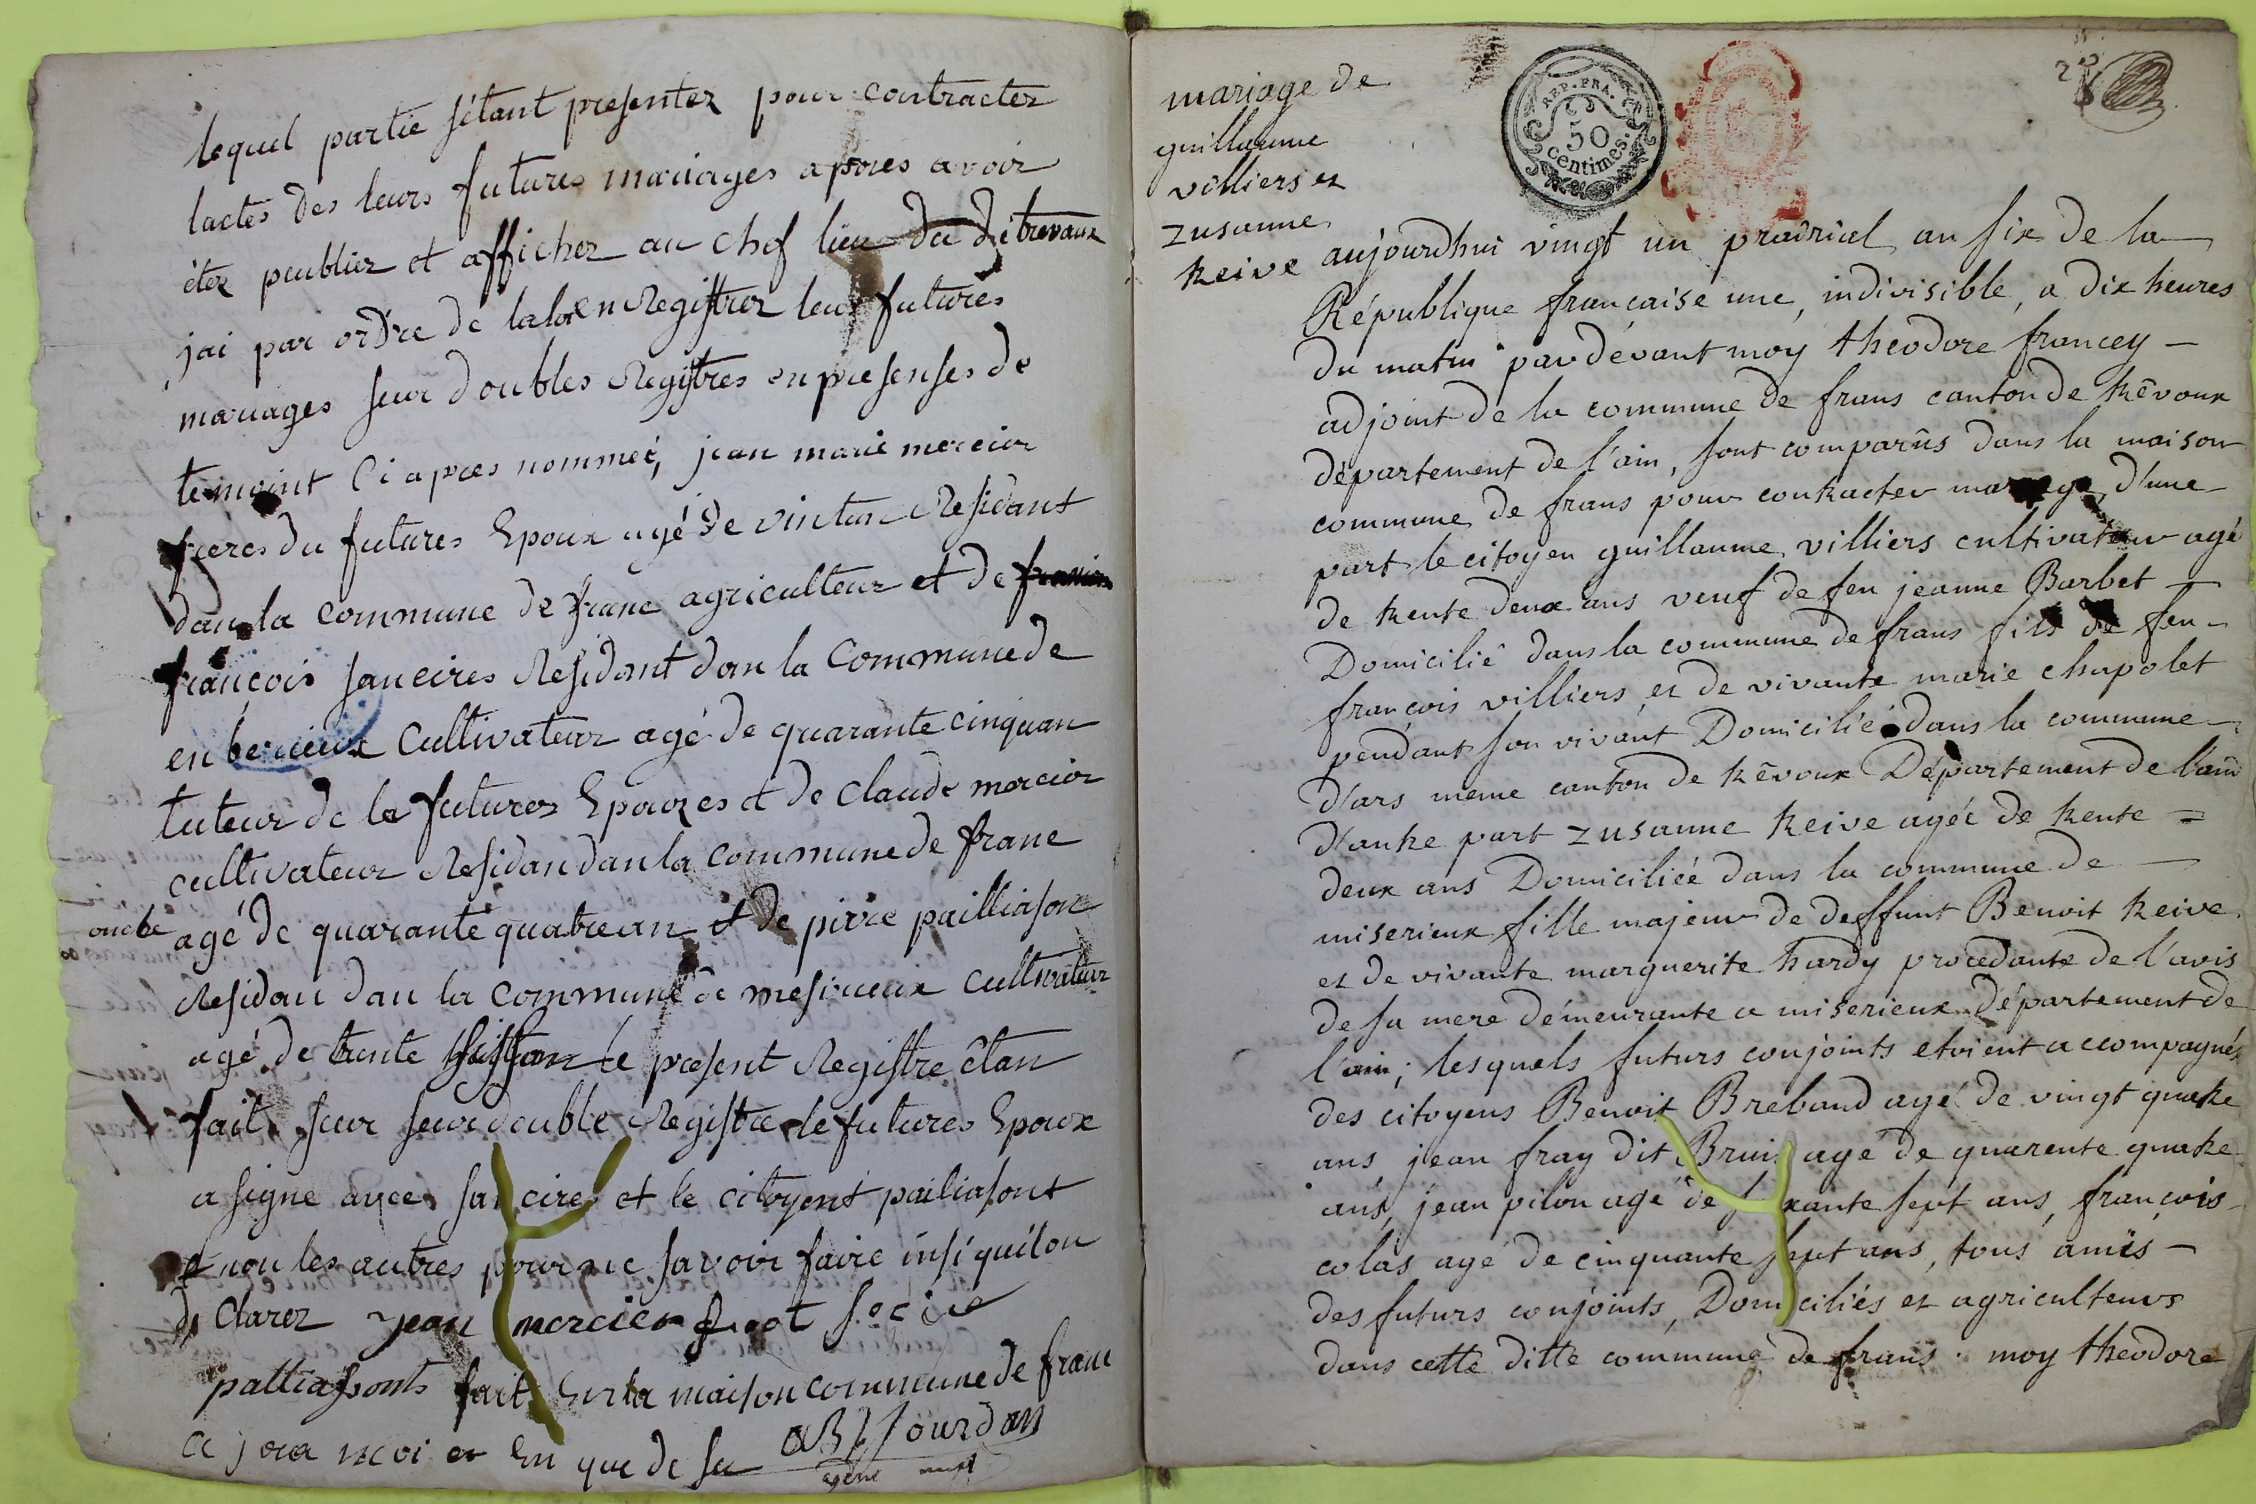 lequel partie sétant presentez pour contractez
lactes des leurs futures mariages apres avoir
étez peublier et affichez au chef lieu du di trevoux
jai par ordre de laloi en Registrez leur futures
mariages seur doubles Registres en presenses de
temoint Ci apres nommeé, jean marie mercier
freres du futures Epoux agé de vintun Residant
dan la commune de franc agriculteur et de
françois saneires Residant dan la Commune de
en berieux Cultivateur agé de quarante cinquan
tuteur de la futures Epouzes et de claude mercier
cultivateur Residan dan la commune de franc
oncle agé de quarante quatre an et de pirre pailliason
Residan dan la commune de mesirieux Cultivateur
agé de trente le present Registre êtan
fait seur seur double Registre le futures Epoux
a signe avec et le citoyent pailiasont
e non les autres pour ne savoir faire insi quilon
de Clarez jean mercier
palliassonts fait En la maison commune de franc
ce jour moi et En que de su ABJourdan
agent
mariage de
guillaume
villiers et
zusanne
treive
REP. FRA.
50
centimes.
aujourdhui vingt un prairial an six de la
République française une, indivisible, a dix heures
du matin pardévant moy théodore francey
adjoint de la commune de frans canton de trévoux
département de l'ain, sont comparûs dans la maison
commune de frans pour contracter mariage, d'une
part le citoyen guillaume villiers cultivateur agé
de trente deux ans veuf de feu jeanne Barbet
Domicilié dans la commune de frans fils de feu
françois villiers et de vivante marie chapolet
pendant son vivant Domicilié dans la commune
d'ars meme canton de trévoux Département de l'ain
d'autre part zusanne treive agée de trente =
deux ans Domiciliée dans la commune de
miserieux fille majeur de deffunt Benoit treive
et de vivante marguerite hardy procedante de l'avis
de sa mere démeurante a miserieux Département de
l'ain; lesquels futurs conjoints etoient accompagnés
des citoyens Benoit Breband agé de vingt quatre
ans jean fray dit agé de quarente quatre
ans, jean pilon agé de soixante sept ans, françois
colas agé de cinquante sept ans, tous amïs
des futurs conjoints, Domiciliés et agriculteurs
dans cette ditte commune de frans. moy théodore